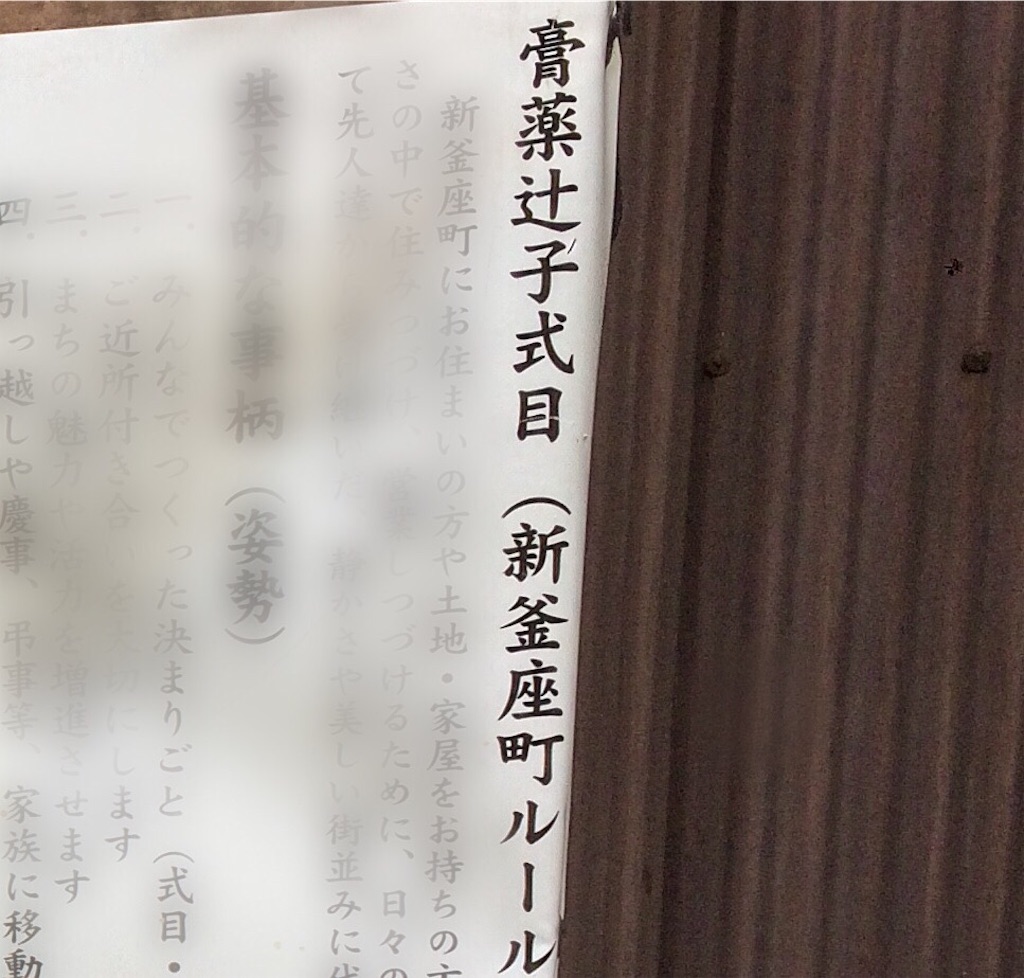 膏薬辻子式目（新釜座町ルール
新釜座町にお住まいの方や土地・家屋をお持ちの方
さの中で住みつづけ、営業しつづけるために、日々の
て先人達が 静かさや美しい街並みに
基本的な事柄（姿勢）
一．みんなでつくった決まりごと（式目・
二．ご近所付き合いを大切にします
三．まちの魅力や活力を増進させます
四．引っ越しや慶事、弔事等、家族に移動